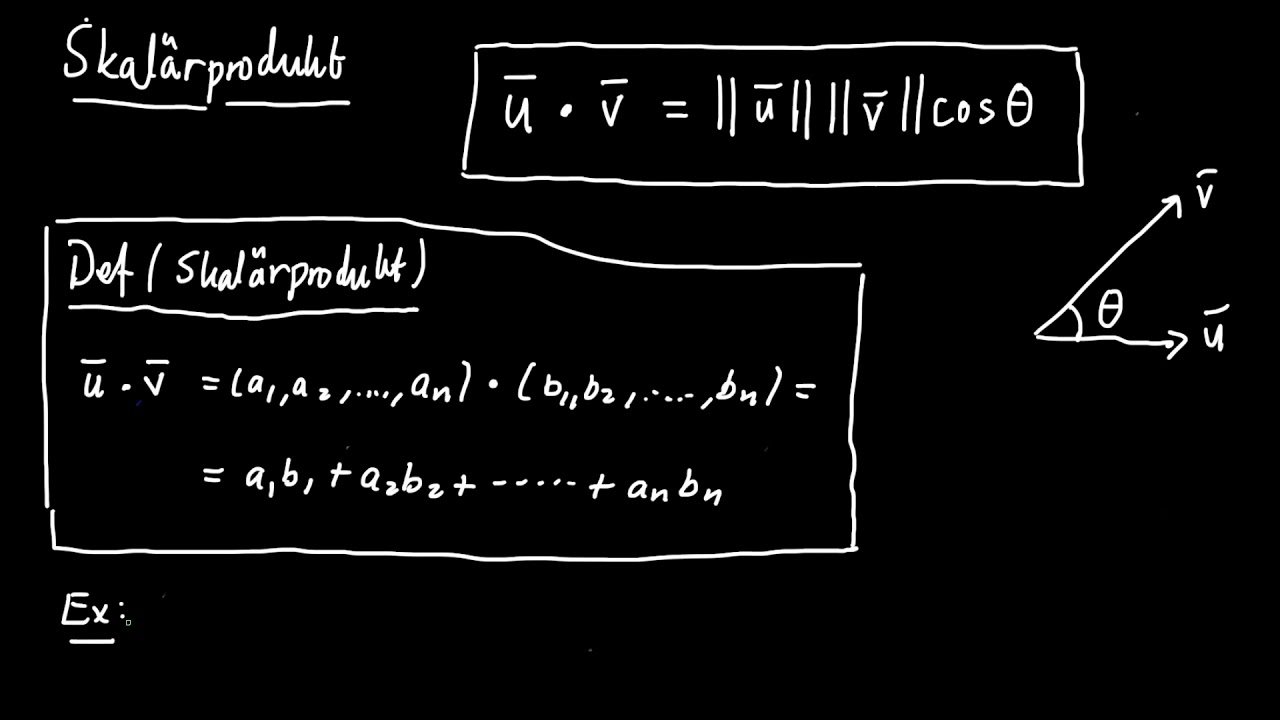 Skalärprodukt
ū · v̄ = ||ū|| ||v̄|| cosθ
v̄
θ
ū
Def (Skalärprodukt)
ū · v̄ = (a₁, a₂, ...., aₙ) · (b₁, b₂, ......, bₙ) =
= a₁b₁ + a₂b₂ + ------ + aₙbₙ
Ex: